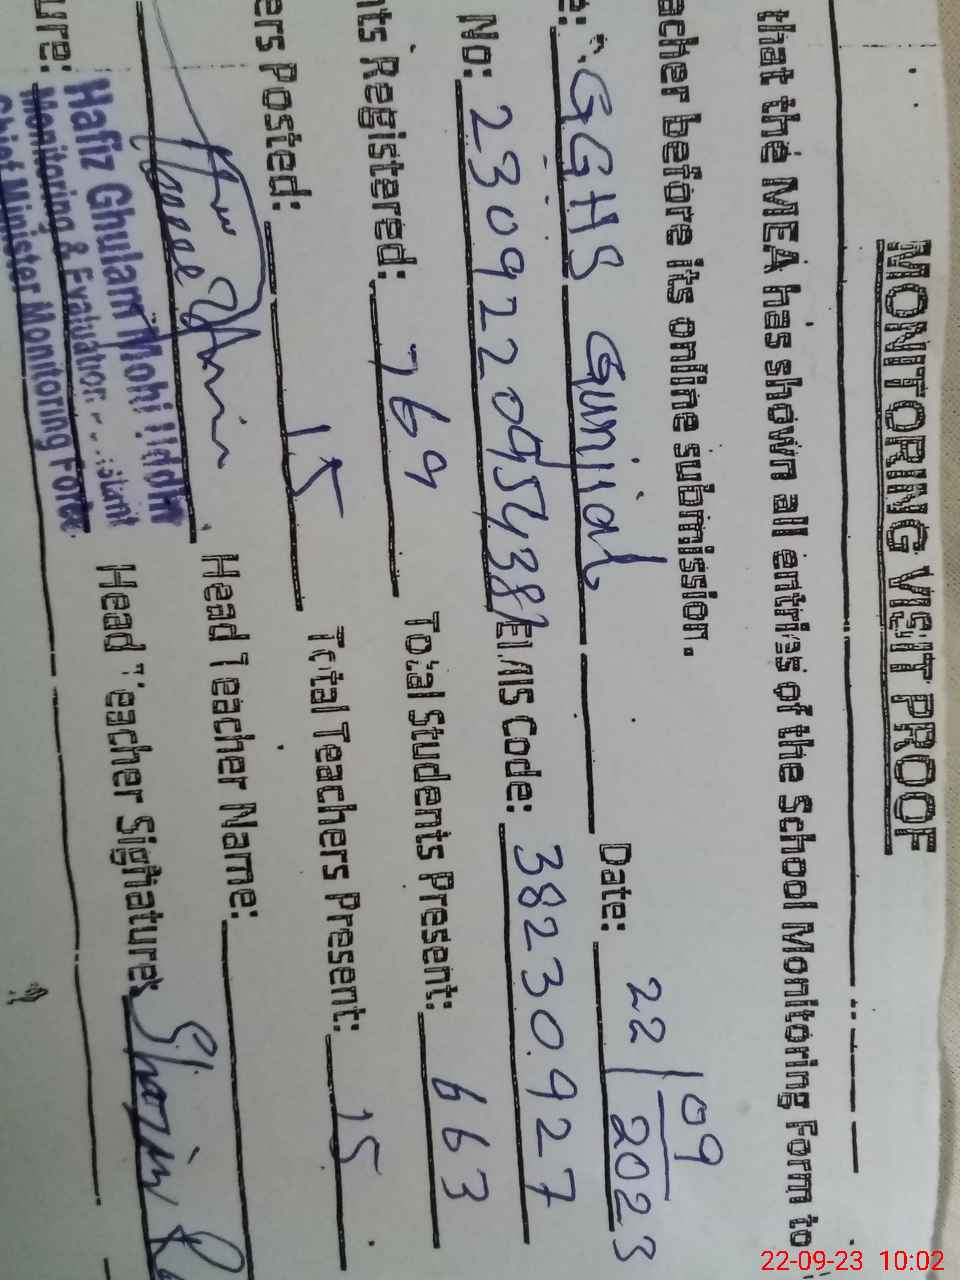 MONITORING VISIT PROOF
that the MEA has shown all entries of the School Monitoring Form to
acher before its online submission.
e: GGHS Gunjial Date: 22/09/2023
No: 23092209543 EMIS Code: 38230927
nts Registered: 769 Total Students Present: 663
ers Posted: 15 Total Teachers Present: 15
Head Teacher Name:
ure: Head Teacher Signature:
Hafiz Ghulam Mohi Uddin
Monitoring & Evaluation
Chief Minister Monitoring Force
22-09-23 10:02